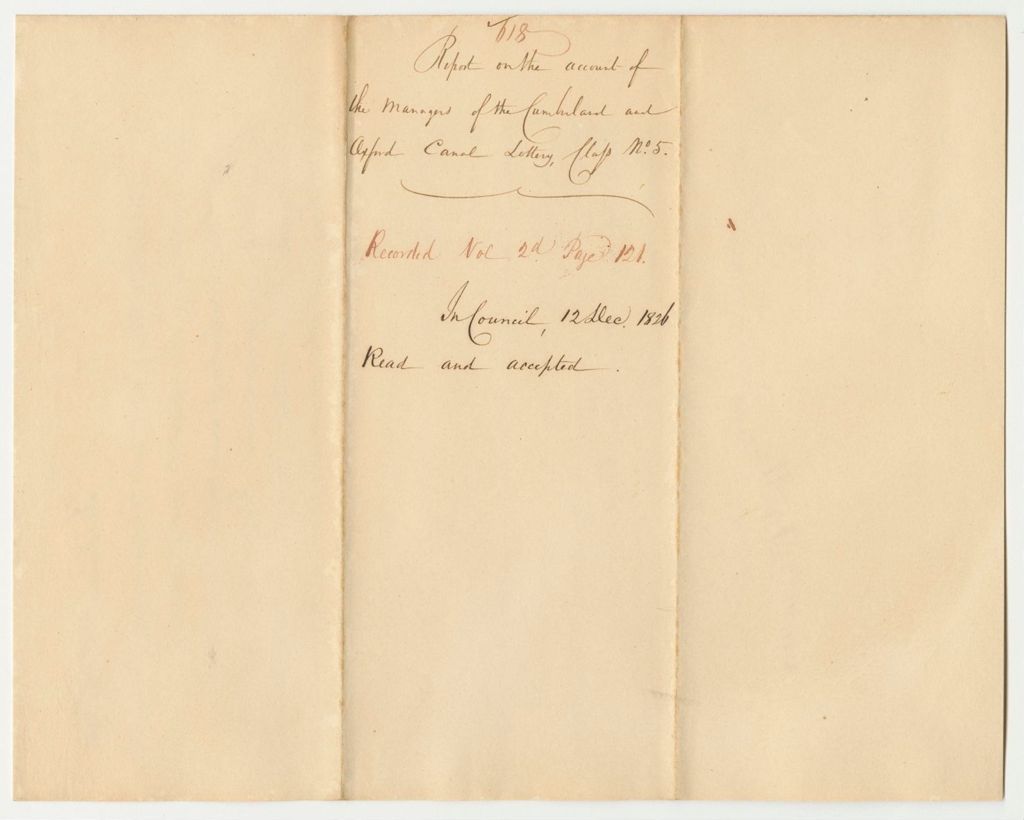 618
Report on the account of
the Managers of the Cumberland and
Oxford Canal Lottery, Class No. 5.
Recorded Vol 2d Page 121.
In Council, 12 Dec. 1826
Read and accepted.